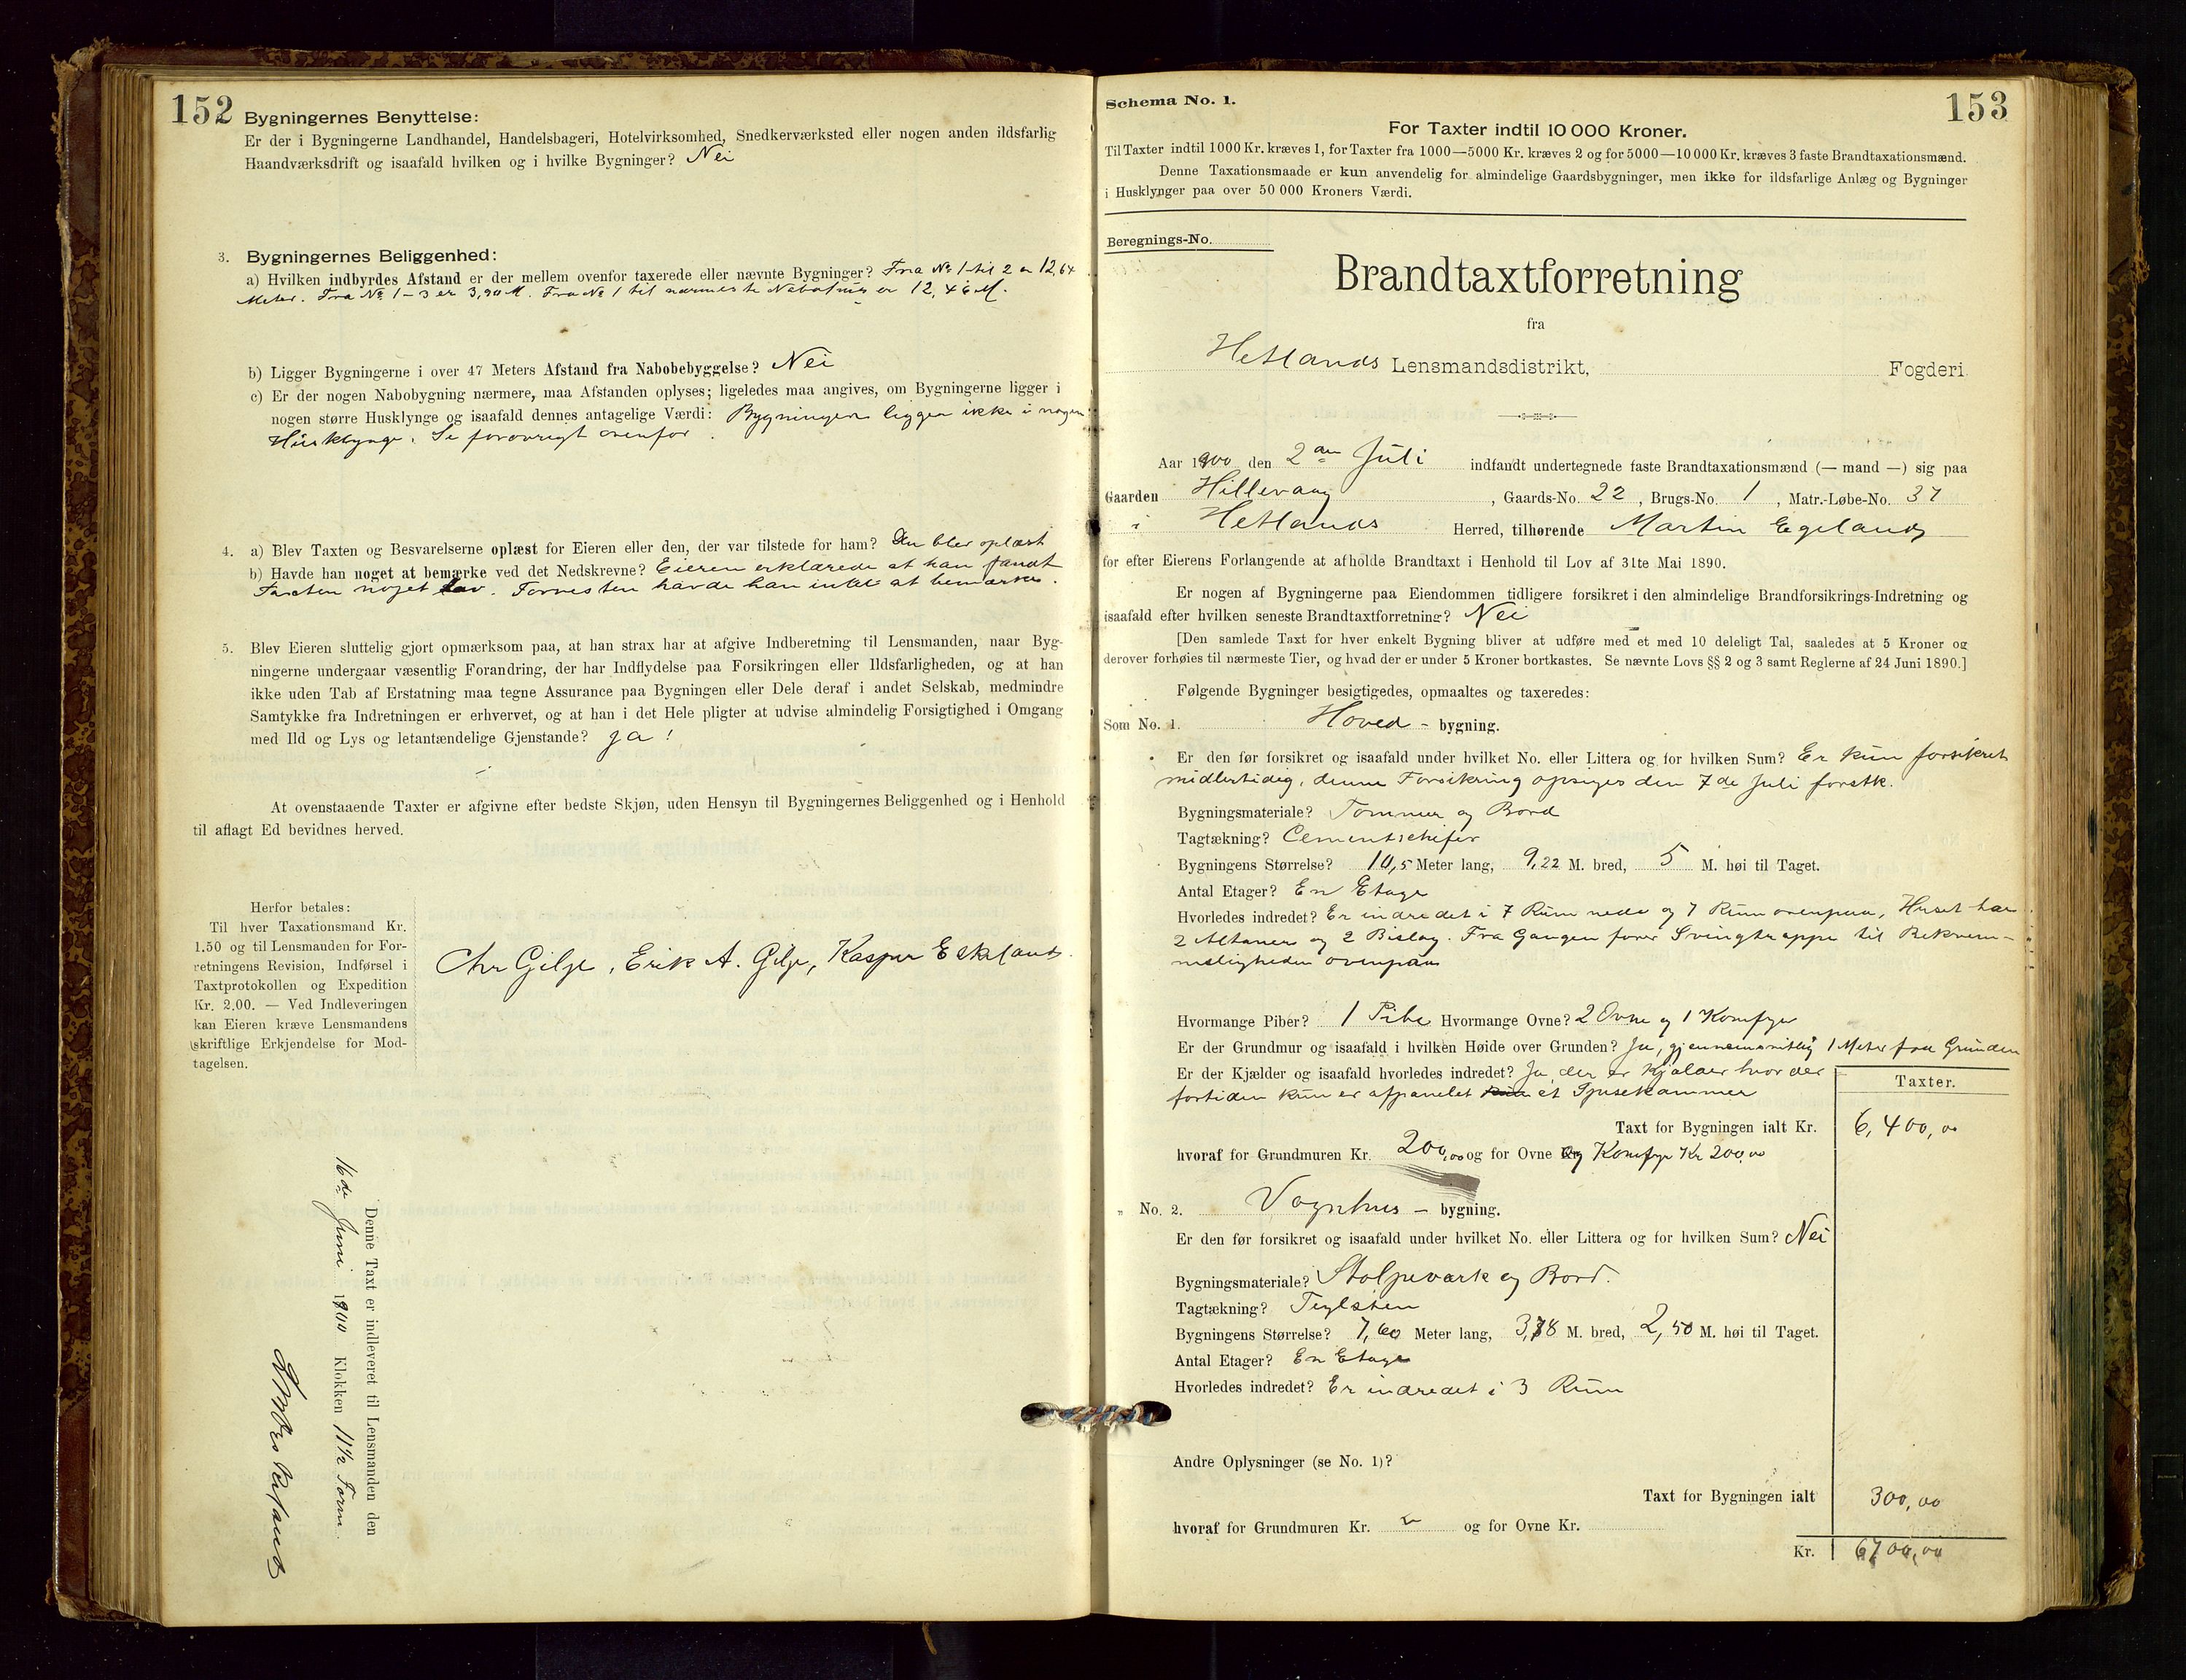 152
Bygningernes Benyttelse:
Er der i Bygningerne Landhandel, Handelsbageri, Hotelvirksomhed, Snedkerværksted eller nogen anden ildsfarlig
Haandværksdrift og isaafald hvilken og i hvilke Bygninger? Nei
3. Bygningernes Beliggenhed:
a) Hvilken indbyrdes Afstand er der mellem ovenfor taxerede eller nævnte Bygninger? Fra No 1 til 2 er 12,64
Meter. Fra No 1-3 er 3,90 M. Fra No 1 til nærmeste Nabohus er 12,46 M.
b) Ligger Bygningerne i over 47 Meters Afstand fra Nabobebyggelse? Nei
c) Er der nogen Nabobygning nærmere, maa Afstanden oplyses; ligeledes maa angives, om Bygningerne ligger i
nogen større Husklynge og isaafald dennes antagelige Værdi: Bygningen ligger ikke i nogen
Husklynge. Se forøvrigt ovenfor.
4. a) Blev Taxten og Besvarelserne oplæst for Eieren eller den, der var tilstede for ham? Den blev oplæst
b) Havde han noget at bemærke ved det Nedskrevne? Eieren erklærede at han fandt
Taxten noget lav. Forresten havde han intet at bemærke.
5. Blev Eieren sluttelig gjort opmærksom paa, at han strax har at afgive Indberetning til Lensmanden, naar Byg-
ningerne undergaar væsentlig Forandring, der har Indflydelse paa Forsikringen eller Ildsfarligheden, og at han
ikke uden Tab af Erstatning maa tegne Assurance paa Bygningen eller Dele deraf i andet Selskab, medmindre
Samtykke fra Indretningen er erhvervet, og at han i det Hele pligter at udvise almindelig Forsigtighed i Omgang
med Ild og Lys og letantændelige Gjenstande? Ja!
At ovenstaaende Taxter er afgivne efter bedste Skjøn, uden Hensyn til Bygningernes Beliggenhed og i Henhold
til aflagt Ed bevidnes herved.
Herfor betales:
Til hver Taxationsmand Kr.
1.50 og til Lensmanden for For-
retningens Revision, Indførsel i
Taxtprotokollen og Expedition
Kr. 2.00. — Ved Indleveringen
kan Eieren kræve Lensmandens
skriftlige Erkjendelse for Mod-
tagelsen.
Chr Gilje, Erik A. Gilje, Kasper Eskeland.
Denne Taxt er indleveret til Lensmanden den
16de Juni 1900 Klokken 11½ Form.
153
Schema No. 1.
For Taxter indtil 10 000 Kroner.
Til Taxter indtil 1000 Kr. kræves 1, for Taxter fra 1000—5000 Kr. kræves 2 og for 5000—10 000 Kr. kræves 3 faste Brandtaxationsmænd.
Denne Taxationsmaade er kun anvendelig for almindelige Gaardsbygninger, men ikke for ildsfarlige Anlæg og Bygninger
i Husklynger paa over 50 000 Kroners Værdi.
Beregnings-No.
Brandtaxtforretning
fra
Hetlands Lensmandsdistrikt, Fogderi
Aar 1900 den 2den Juli indfandt undertegnede faste Brandtaxationsmænd (— mand —) sig paa
Gaarden Hillevaag, Gaards-No. 22, Brugs-No. 1, Matr.-Løbe-No. 37
i Hetlands Herred, tilhørende Martin Egelands
for efter Eierens Forlangende at afholde Brandtaxt i Henhold til Lov af 31te Mai 1890.
Er nogen af Bygningerne paa Eiendommen tidligere forsikret i den almindelige Brandforsikrings-Indretning og
isaafald efter hvilken seneste Brandtaxtforretning? Nei
[Den samlede Taxt for hver enkelt Bygning bliver at udføre med et med 10 deleligt Tal, saaledes at 5 Kroner og
derover forhøies til nærmeste Tier, og hvad der er under 5 Kroner bortkastes. Se nævnte Lovs §§ 2 og 3 samt Reglerne af 24 Juni 1890.]
Følgende Bygninger besigtigedes, opmaaltes og taxeredes:
Som No. 1. Hoved - bygning.
Er den før forsikret og isaafald under hvilket No. eller Littera og for hvilken Sum? Er kun forsikret
midlertidig, denne Forsikring opsiges den 7de Juli førstk.
Bygningsmateriale? Tømmer og Bord
Tagtækning? Cementschifer
Bygningens Størrelse? 10,5 Meter lang, 9,22 M. bred, 5 M. høi til Taget.
Antal Etager? En Etage
Hvorledes indredet? Er indredet i 7 Rum nede og 7 Rum ovenpaa, Huset har
2 Altaner og 2 Bislag. Fra Gangen fører Svingtrappe til Bekvem-
meligheden ovenpaa
Hvormange Piber? 1 Pibe Hvormange Ovne? 2 Ovne og 1 Komfyr
Er der Grundmur og isaafald i hvilken Høide over Grunden? Ja, gjennemsnitlig 1 Meter fra Grunden
Er der Kjælder og isaafald hvorledes indredet? Ja, der er Kjelder hvor der
fortiden kun er afpanelet et Spisekammer
Taxter.
Taxt for Bygningen ialt Kr. 6,400,00
hvoraf for Grundmuren Kr. 200,00 og for Ovne og Komfyr Kr 200,00
" No. 2. Vognhus - bygning.
Er den før forsikret og isaafald under hvilket No. eller Littera og for hvilken Sum? Nei
Bygningsmateriale? Stolpeværk og Bord.
Tagtækning? Teglsten
Bygningens Størrelse? 7,60 Meter lang, 3,78 M. bred, 2,50 M. høi til Taget.
Antal Etager? En Etage
Hvorledes indredet? Er indredet i 3 Rum
Andre Oplysninger (se No. 1)?
Taxt for Bygningen ialt 300,00
hvoraf for Grundmuren Kr. og for Ovne Kr.
Kr. 6700,00